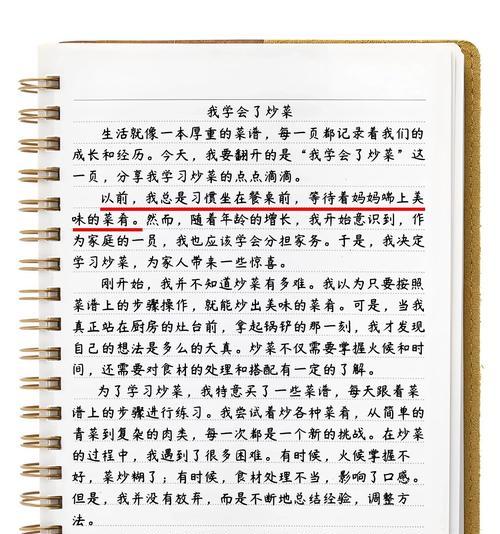 我学会了炒菜
生活就像一本厚重的菜谱，每一页都记录着我们的
成长和经历。今天，我要翻开的是“我学会了炒菜”这
一页，分享我学习炒菜的点点滴滴。
以前，我总是习惯坐在餐桌前，等待着妈妈端上美
味的菜肴。然而，随着年龄的增长，我开始意识到，作
为家庭的一员，我也应该学会分担家务。于是，我决定
学习炒菜，为家人带来一些惊喜。
刚开始，我并不知道炒菜有多难。我以为只要按照
菜谱上的步骤操作，就能炒出美味的菜肴。可是，当我
真正站在厨房的灶台前，拿起锅铲的那一刻，我才发现
自己的想法是多么的天真。炒菜不仅需要掌握火候和时
间，还需要对食材的处理和搭配有一定的了解。
为了学习炒菜，我特意买了一些菜谱，每天跟着菜
谱上的步骤进行练习。我尝试着炒各种菜肴，从简单的
青菜到复杂的肉类，每一次都是一个新的挑战。在炒菜
的过程中，我遇到了很多困难。有时候，火候掌握不
好，菜炒糊了；有时候，食材处理不当，影响了口感。
但是，我并没有放弃，而是不断地总结经验，调整方
法。